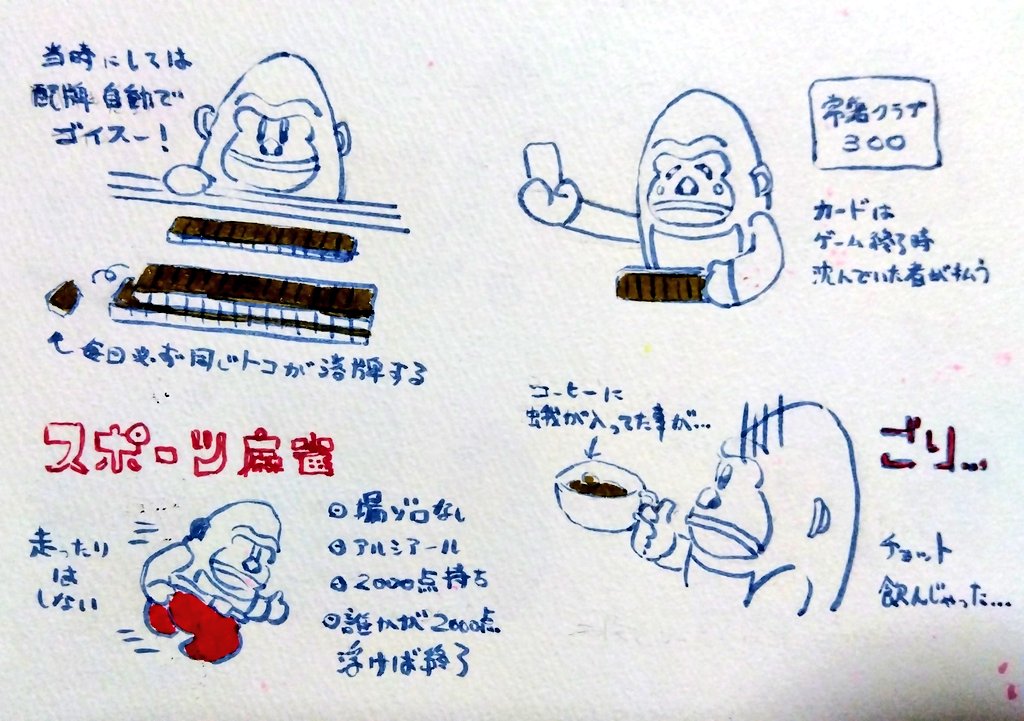 当時にしては
配牌自動で
ゴイスー!
毎日必ず同じトコが落牌する
常磐クラブ
300
カードは
ゲーム終了時
沈んでいた者が払う
スポーツ麻雀
走ったり
は
しない
◎場ゾロなし
◎アルシアール
◎2000点持ち
◎誰かが2000点
浮けば終了
コーヒーに
蛾が入ってた事が…
ざり…
チョット
飲んじゃった…